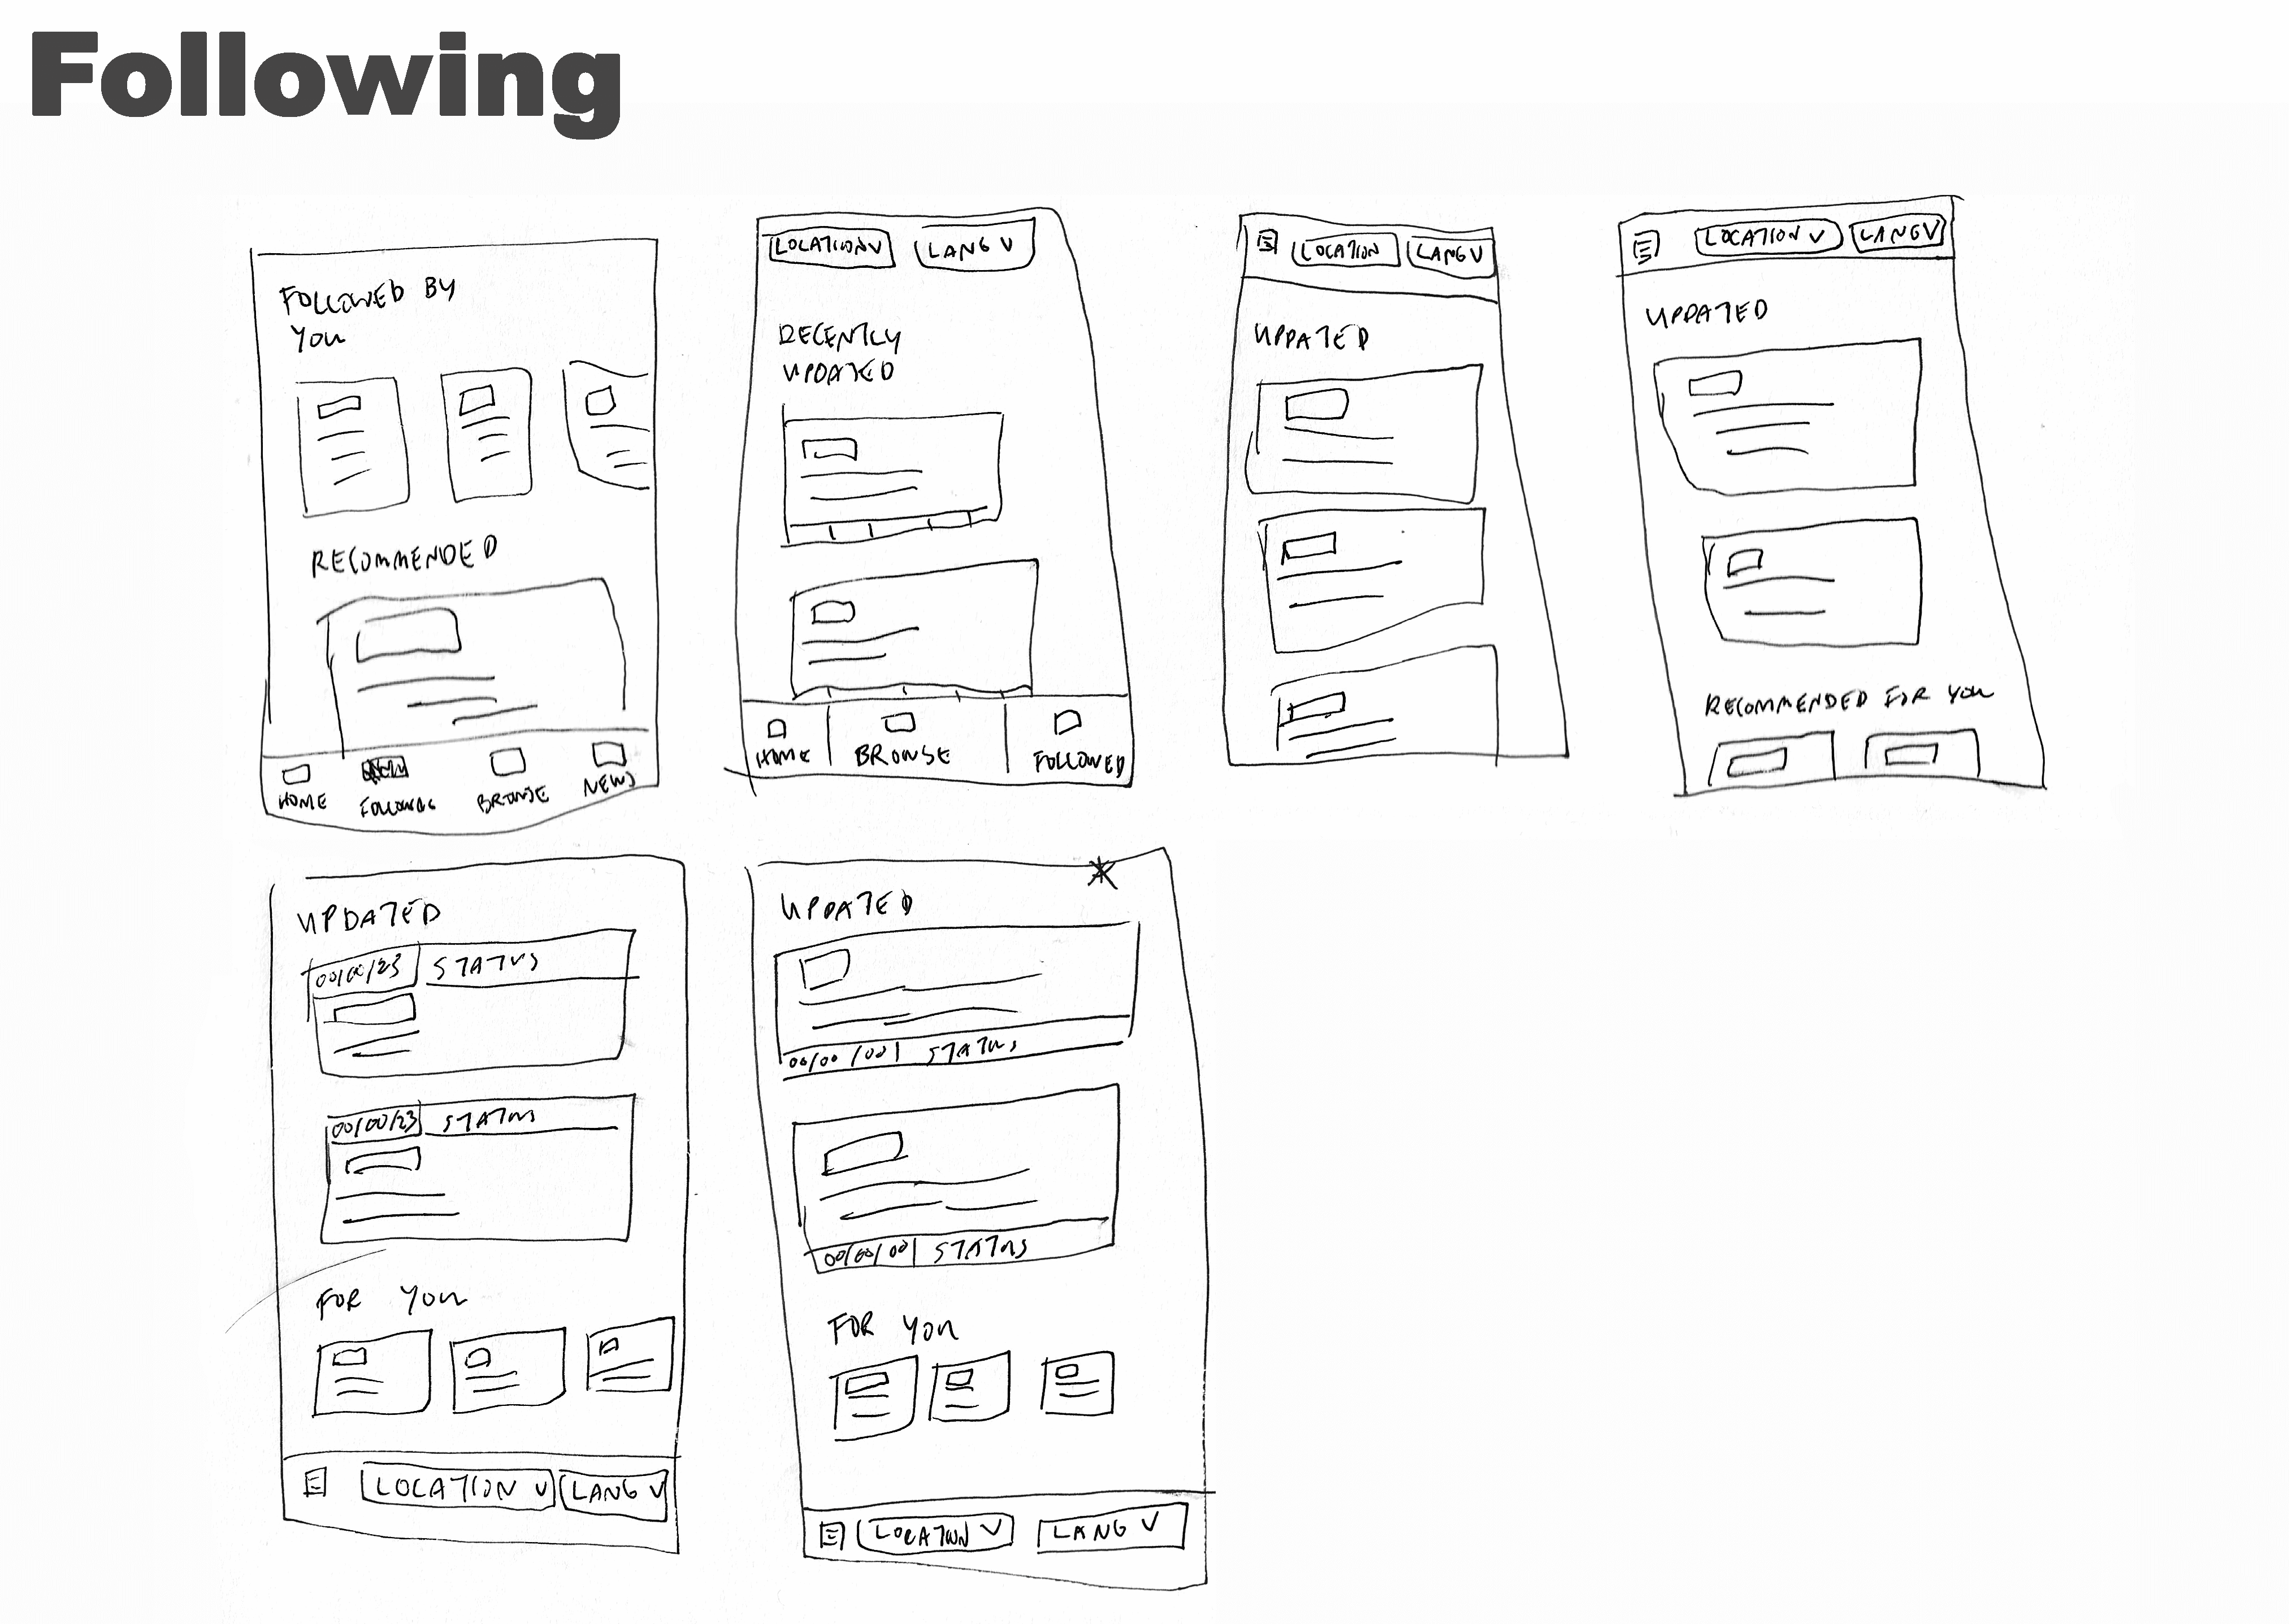 Following
FOLLOWED BY
YOU
RECOMMENDED
HOME
FOLLOWING
BROWSE
NEWS
LOCATION V
LANG V
RECENTLY
UPDATED
HOME
BROWSE
FOLLOWED
LOCATION
LANG V
UPDATED
LOCATION V
LANG V
UPDATED
RECOMMENDED FOR YOU
UPDATED
00/00/23 STATUS
00/00/23 STATUS
FOR YOU
LOCATION V
LANG V
UPDATED
00/00/00 STATUS
00/00/00 STATUS
FOR YOU
LOCATION V
LANG V